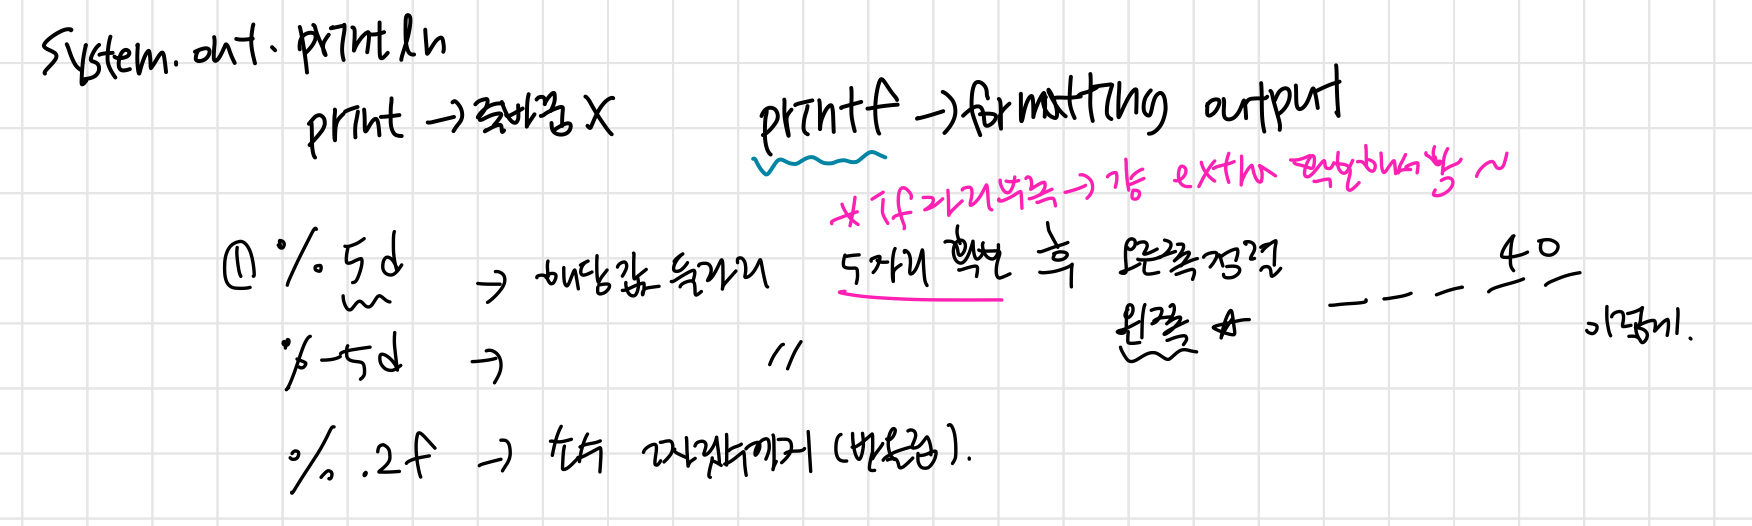 System.out.println
print → 줄바꿈 X printf → formatting output
* if 자리부족 → 걍 extra 확보해서 놯 ~
① %5d → 해당값 들러리 5자리 확보 후 오른쪽정렬 _ _ _ 4 0
%-5d → 〃 왼쪽 ☆ 이렇게.
%.2f → 소수 2자리수까지 (반올림).